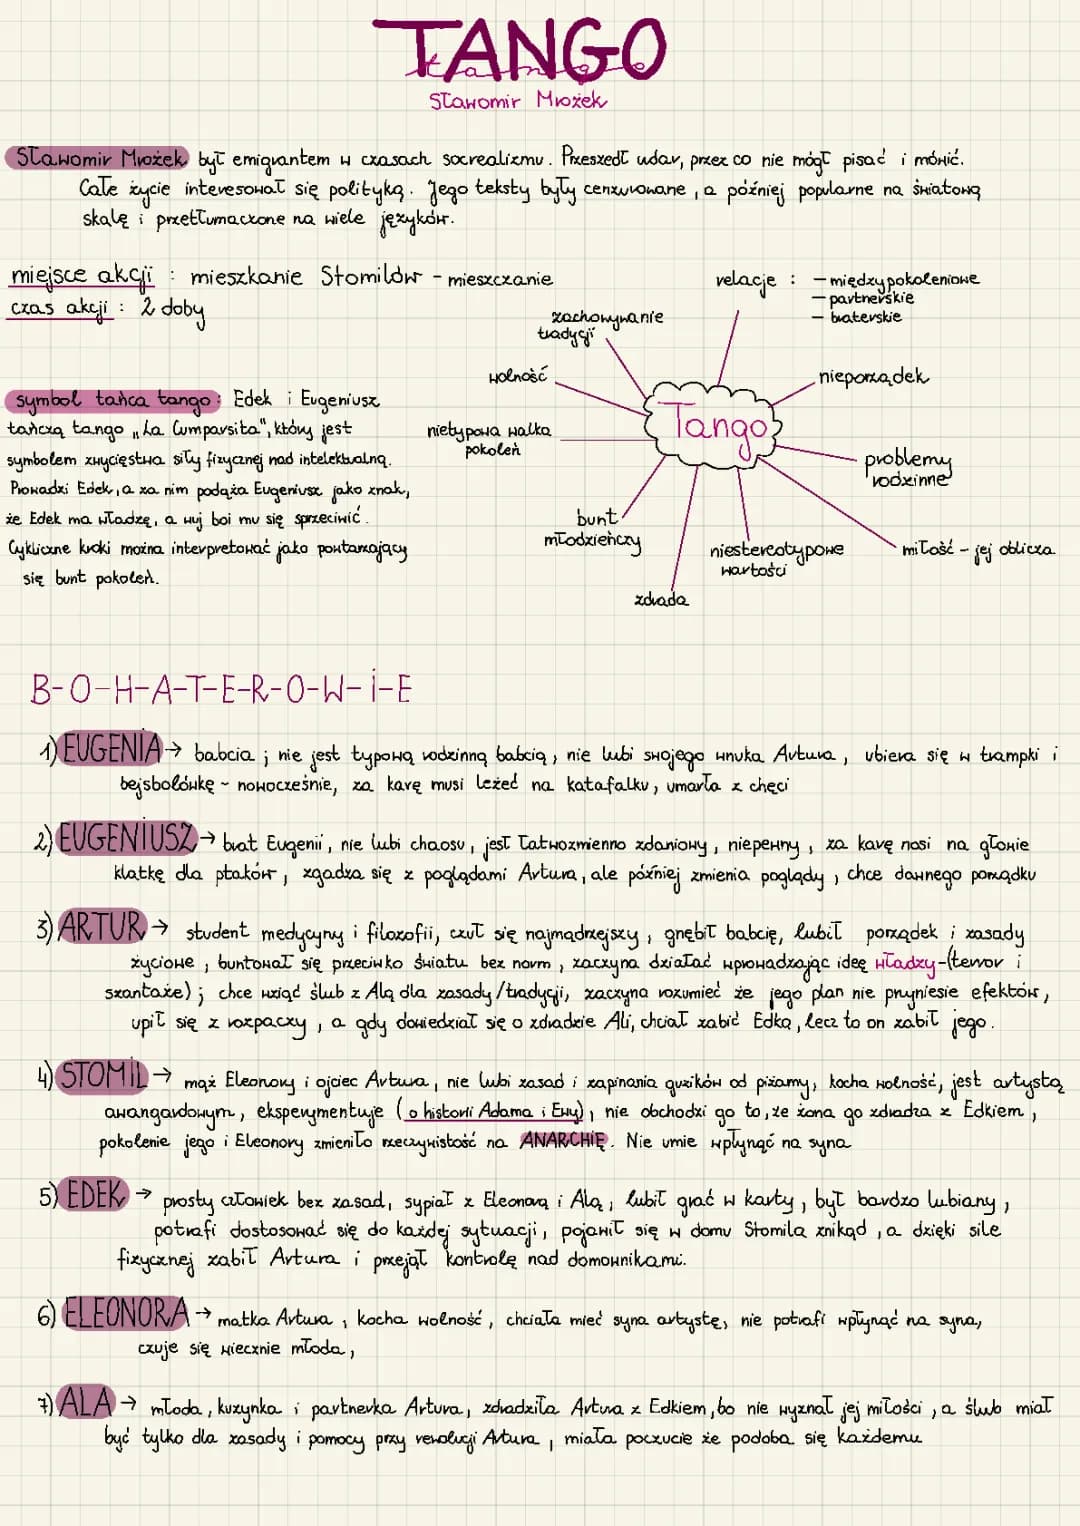 TANGO
tango
Sławomir Mrożek
Sławomir Mrożek był emigrantem w czasach socrealizmu. Przeszedł udar, przez co nie mógł pisać i mówić.
Całe życie interesował się polityką. Jego teksty były cenzurowane, a później popularne na światową
skalę i przetłumaczone na wiele języków.
miejsce akcji : mieszkanie Stomilów - mieszczanie
czas akcji : 2 doby
relacje : - międzypokoleniowe
- partnerskie
- braterskie
zachowywanie
tradycji
wolność
nieporządek
symbol tańca tango: Edek i Eugeniusz
tańczą tango „La Cumparsita", który jest
symbolem zwycięstwa siły fizycznej nad intelektualną.
Prowadzi Edek, a za nim podąża Eugeniusz jako znak,
że Edek ma władzę, a wuj boi mu się sprzeciwić.
Cykliczne kroki można interpretować jako powtarzający
się bunt pokoleń.
Tango
nietypowa walka
pokoleń
problemy
rodzinne
bunt
młodzieńczy
niestereotypowe
wartości
miłość - jej oblicza
zdrada
B-O-H-A-T-E-R-O-W-i-E
1) EUGENIA → babcia ; nie jest typową rodzinną babcią, nie lubi swojego wnuka Artura, ubiera się w trampki i
bejsbolówkę ~ nowocześnie, za karę musi leżeć na katafalku, umarła z chęci
2) EUGENIUSZ → brat Eugenii, nie lubi chaosu, jest łatwozmienno zdaniowy, niepewny, za karę nosi na głowie
klatkę dla ptaków, zgadza się z poglądami Artura, ale później zmienia poglądy, chce dawnego porządku
3) ARTUR → student medycyny i filozofii, czuł się najmądrzejszy, gnębił babcię, lubił porządek i zasady
życiowe, buntował się przeciwko światu bez norm, zaczyna działać wprowadzając ideę władzy-(terror i
szantaże) ; chce wziąć ślub z Alą dla zasady/tradycji, zaczyna rozumieć że jego plan nie przyniesie efektów,
upił się z rozpaczy, a gdy dowiedział się o zdradzie Ali, chciał zabić Edka, lecz to on zabił jego.
4) STOMIL → mąż Eleonory i ojciec Artura, nie lubi zasad i zapinania guzików od piżamy, kocha wolność, jest artystą
awangardowym, eksperymentuje (o historii Adama i Ewy), nie obchodzi go to, że żona go zdradza z Edkiem,
pokolenie jego i Eleonory zmieniło rzeczywistość na ANARCHIĘ. Nie umie wpłynąć na syna
5) EDEK → prosty człowiek bez zasad, sypiał z Eleonorą i Alą, lubił grać w karty, był bardzo lubiany,
potrafi dostosować się do każdej sytuacji, pojawił się w domu Stomila znikąd, a dzięki sile
fizycznej zabił Artura i przejął kontrolę nad domownikami.
6) ELEONORA → matka Artura, kocha wolność, chciała mieć syna artystę, nie potrafi wpłynąć na syna,
czuje się wiecznie młoda,
7) ALA → młoda, kuzynka i partnerka Artura, zdradziła Artura z Edkiem, bo nie wyznał jej miłości, a ślub miał
być tylko dla zasady i pomocy przy rewolucji Artura, miała poczucie że podoba się każdemu